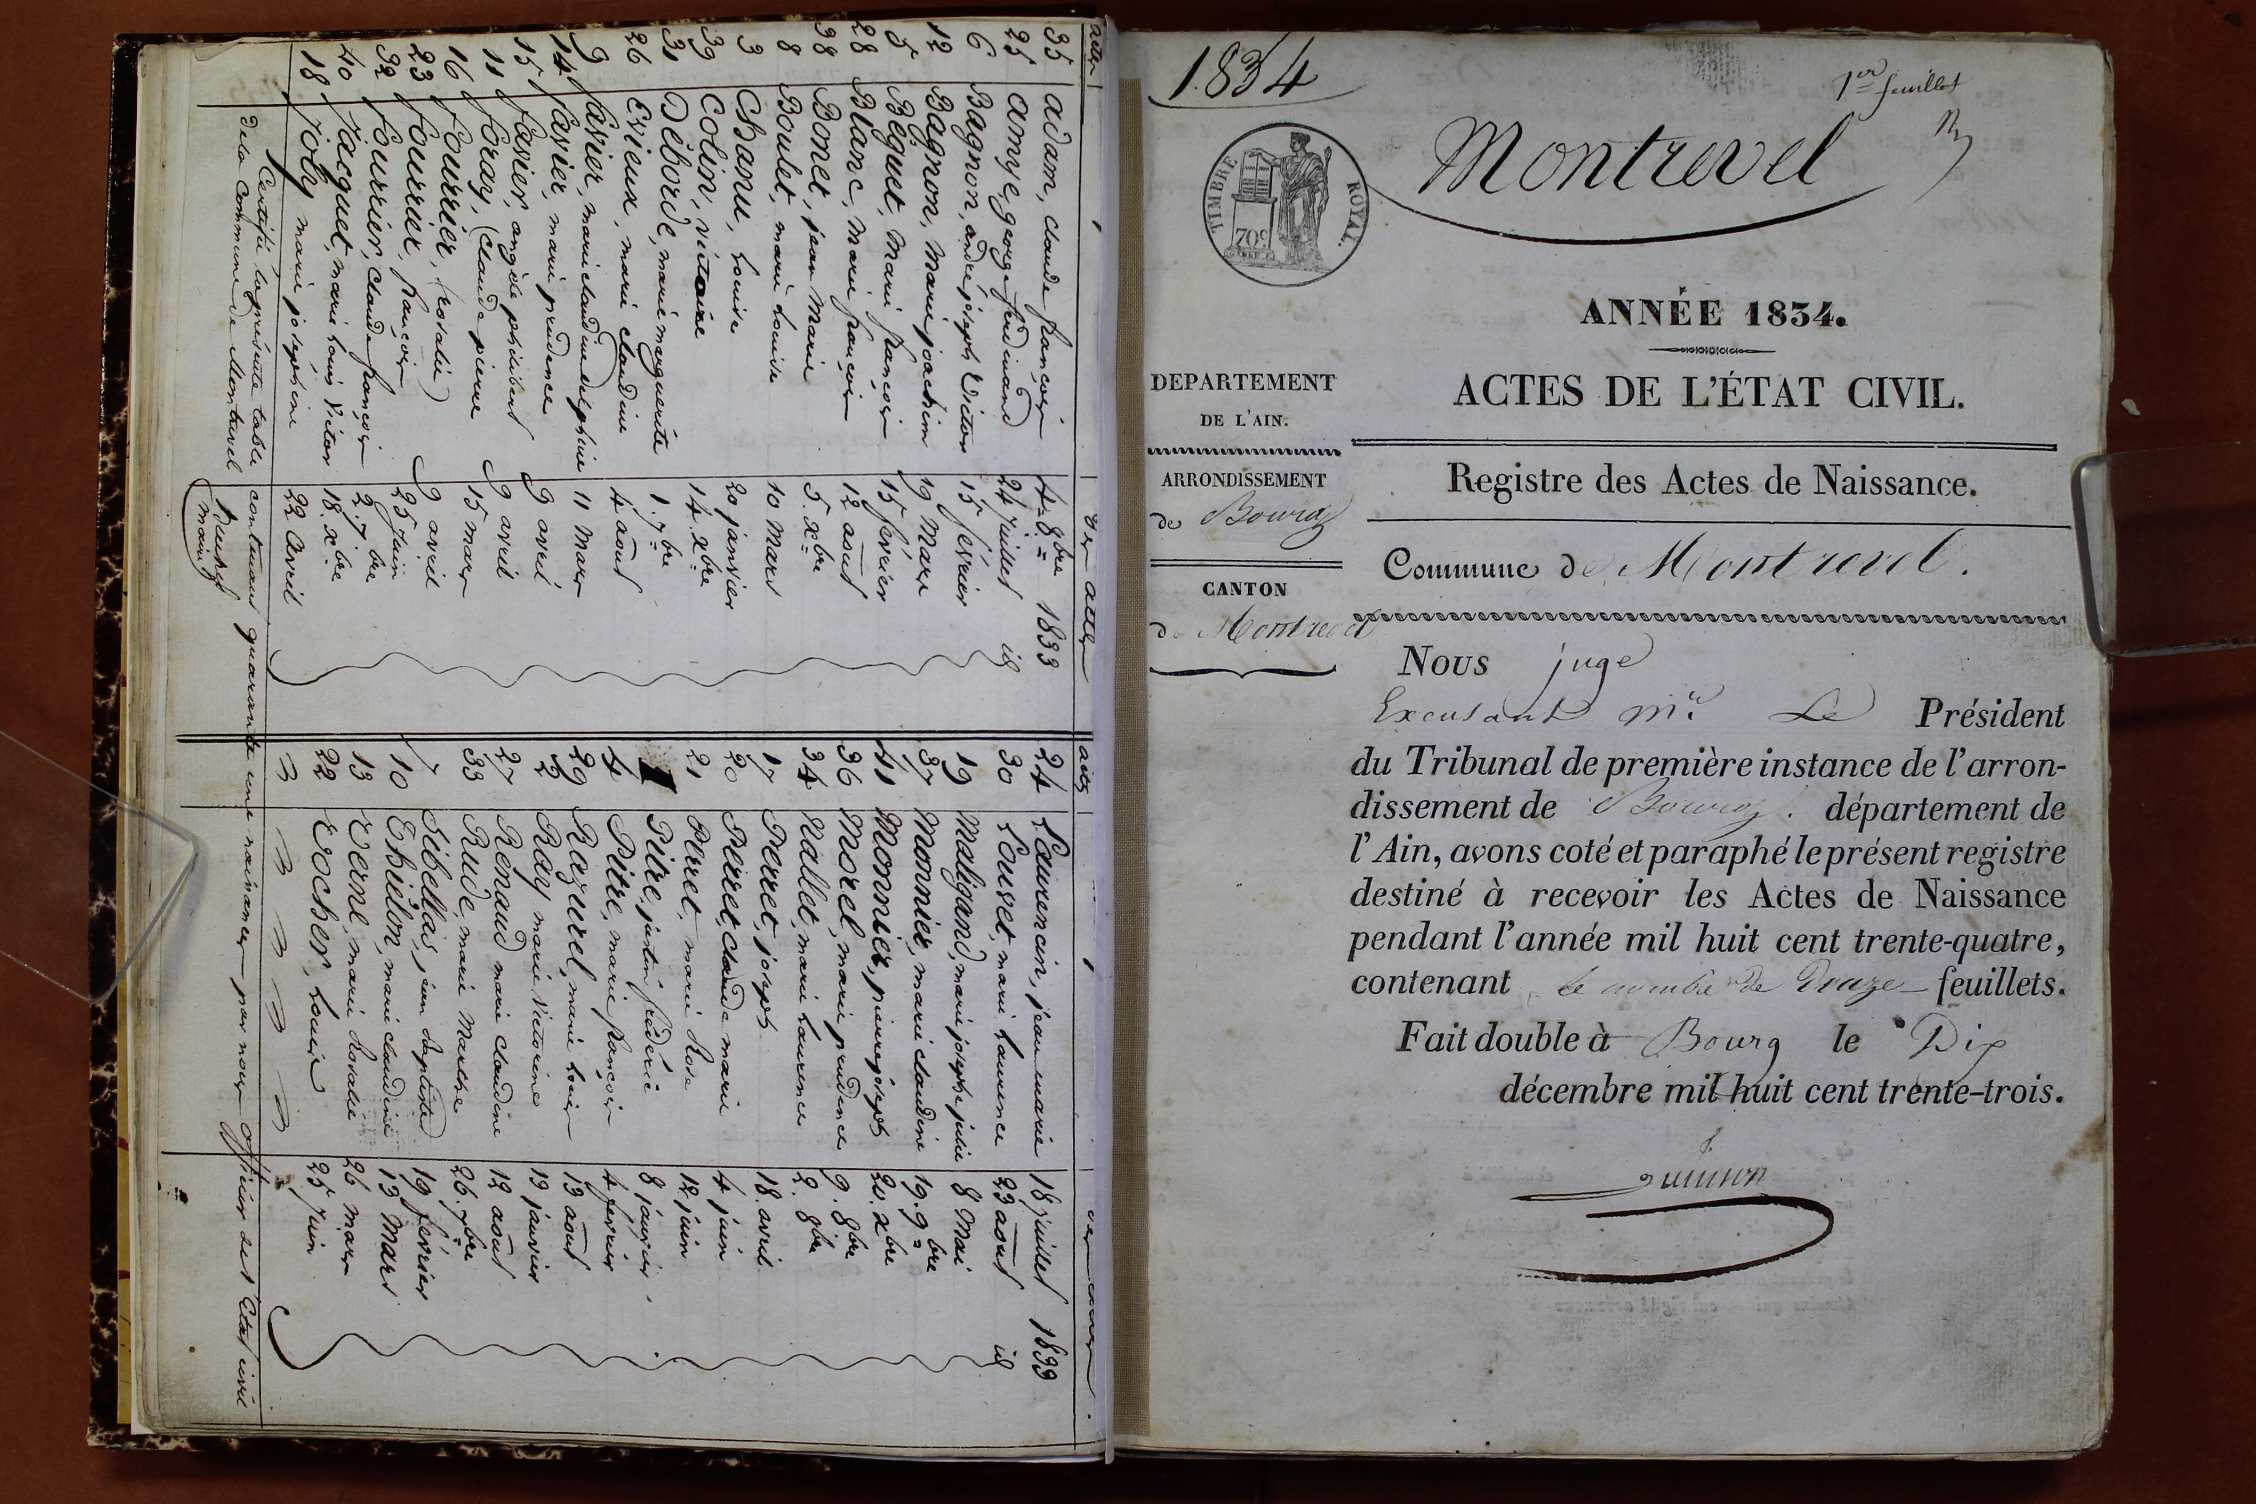 actes
des actes
35 adam, claude françois 4. 8bre 1833
25 amye, george ferdinand 24 juillet id
6 Bagnon, andré joseph Victor 15 février
12 Bagnon, Marie joachim 19 Mars
5 Béguet, Marie françois 15 février
28 Blanc, Marie françois 12 août
38 Bonet, jean Marie 5. xbre
8 Boulet, marie Louise 10 Mars
3 Chanu, Louise 20 janvier
39 Colin, victoire 14. xbre
31 Deborde, marie marguerite 1. 7bre
26 Evieux, marie claudine 4 août
9 favier, marie claudine delphine 11 Mars
14 favier, marie prudence 9 avril
15 favier, angèle philibert 9 avril
11 foray, (claude pierre 15 mars
16 fourrier, (rosalie) 9 avril
23 fourrier, françois 25 juin
32 fourrier, claude françois 2. 7bre
40 jacquet, marie Louis Victor 18. xbre
18 joly marie josephine 22 avril
actes
24 Laurencin, jean marie 18 juillet 1833
30 Louvet, marie Laurence 23 août id
19 Maligand, marie josephe julie 8 Mai
37 Monnier, marie claudine 19. 9bre
41 Monnier, pierre joseph 20. xbre
36 Morel, marie prudence 9. 8bre
34 Nallet, marie Laurence 2. 8bre
17 Perret, joseph 18. avril
20 Perret, claude marie 4 juin
21 Perret, marie Rose 12 juin
1 Pitre, justin fréderic 8 janvier
4 Pitre, marie françois 4 fevrier
29 Razurel, marie Louis 13 août
2 Ray marie Victorine 13 janvier
27 Renaud marie claudine 12 août
33 Rude, marie Marthe 26. 7bre
7 Sibellas, jean baptiste 19 février
10 Thielon, marie claudine 13 Mars
13 Verne, marie Rosalie 26 mars
22 Vocher, Louis 25 juin
Certifié, la présente table contenant quarante une naissances par nous officier de l'Etat civil
de la commune de Montrevel
maire
1834
1er feuillet
Montrevel
TIMBRE ROYAL.
70c
ANNÉE 1834.
ACTES DE L'ÉTAT CIVIL.
DEPARTEMENT
DE L'AIN.
ARRONDISSEMENT
de Bourg
CANTON
de Montrevel
Registre des Actes de Naissance.
Commune de Montrevel.
Nous juge
Excusant Mr. Le Président
du Tribunal de première instance de l'arron-
dissement de Bourg. département de
l'Ain, avons coté et paraphé le présent registre
destiné à recevoir les Actes de Naissance
pendant l'année mil huit cent trente-quatre,
contenant le nombre de Douze feuillets.
Fait double à Bourg le Dix
décembre mil huit cent trente-trois.